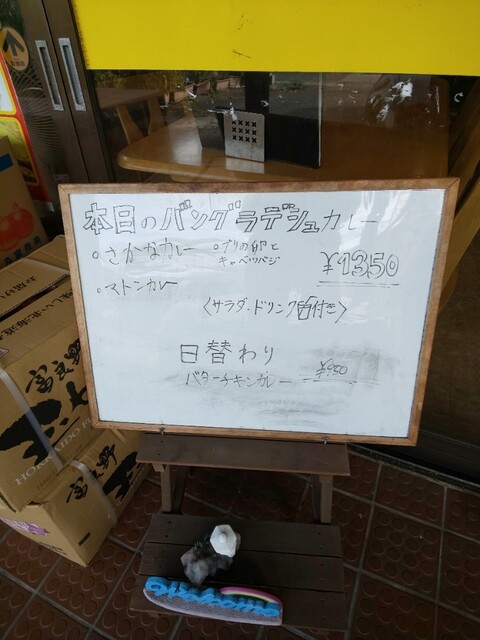 本日のバングラデシュカレー
・さかなカレー ・ブリの卵と
キャベツバジ
¥1350
・マトンカレー
〈サラダ・ドリンク皆付き〉
日替わり
バターチキンカレー ¥950
富良野
HOKKAIDO
富良野